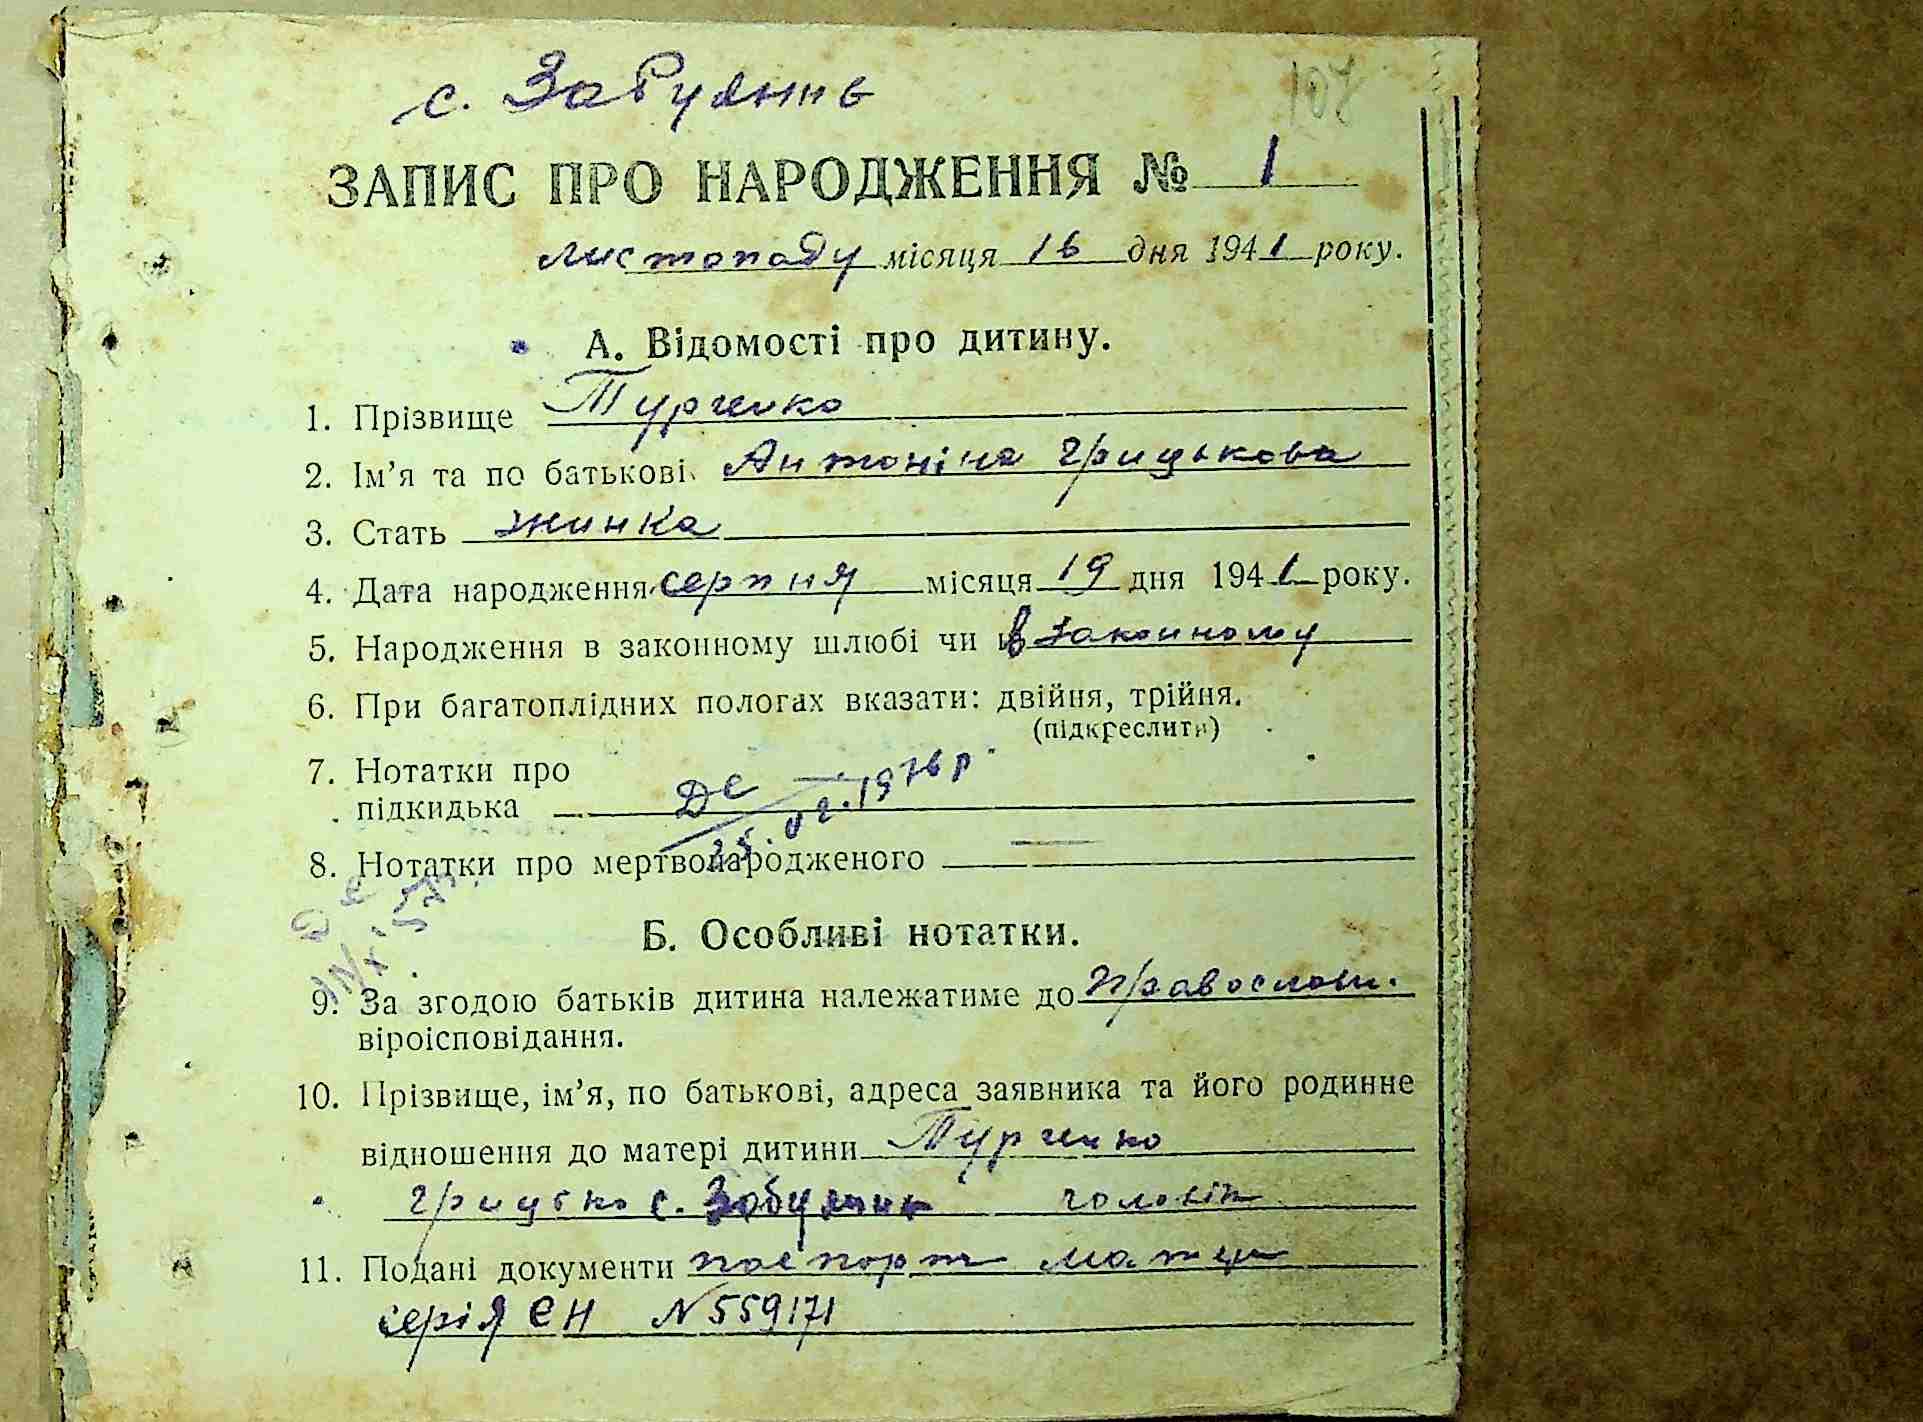 с. Забуяннь
107
ЗАПИС ПРО НАРОДЖЕННЯ № 1
листопаду місяця 16 дня 1941 року.
А. Відомості про дитину.
1. Прізвище Турченко
2. Ім’я та по батькові Антоніна Грицькова
3. Стать жинка
4. Дата народження серпня місяця 19 дня 1941 року.
5. Народження в законному шлюбі чи в законному
6. При багатоплідних пологах вказати: двійня, трійня.
(підкреслити)
7. Нотатки про
підкидька
8. Нотатки про мертвонародженого
Б. Особливі нотатки.
9. За згодою батьків дитина належатиме до православн.
віроісповідання.
10. Прізвище, ім’я, по батькові, адреса заявника та його родинне
відношення до матері дитини Турченко
Грицько с. Забуянн чоловік
11. Подані документи паспорт матери
серія ЄН №559171